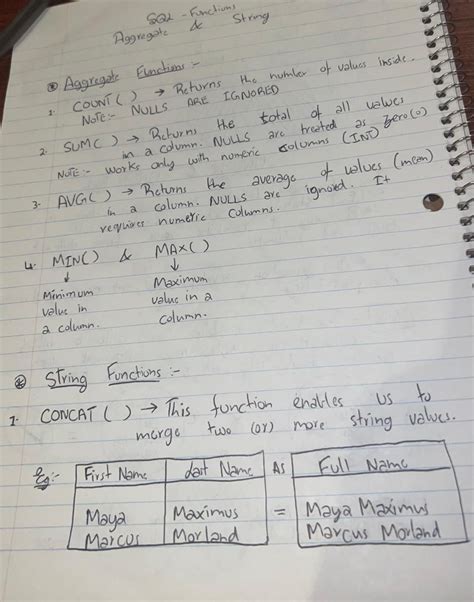 SQL - Functions
Aggregate & String
Aggregate Functions :-
1. COUNT( ) → Returns the number of values inside.
NOTE:- NULLS ARE IGNORED
2. SUM( ) → Returns the total of all values
in a column. NULLS are treated as zero(0)
NOTE:- Works only with numeric columns (INT)
3. AVG( ) → Returns the average of values (mean)
in a column. NULLS are ignored. It
requires numeric columns.
4. MIN( ) & MAX( )
↓ ↓
Minimum Maximum
value in value in a
a column. column.
String Functions :-
1. CONCAT ( ) → This function enables us to
merge two (or) more string values.
Eg:- First Name Last Name As Full Name
Maya Maximus = Maya Maximus
Marcus Morland Marcus Morland